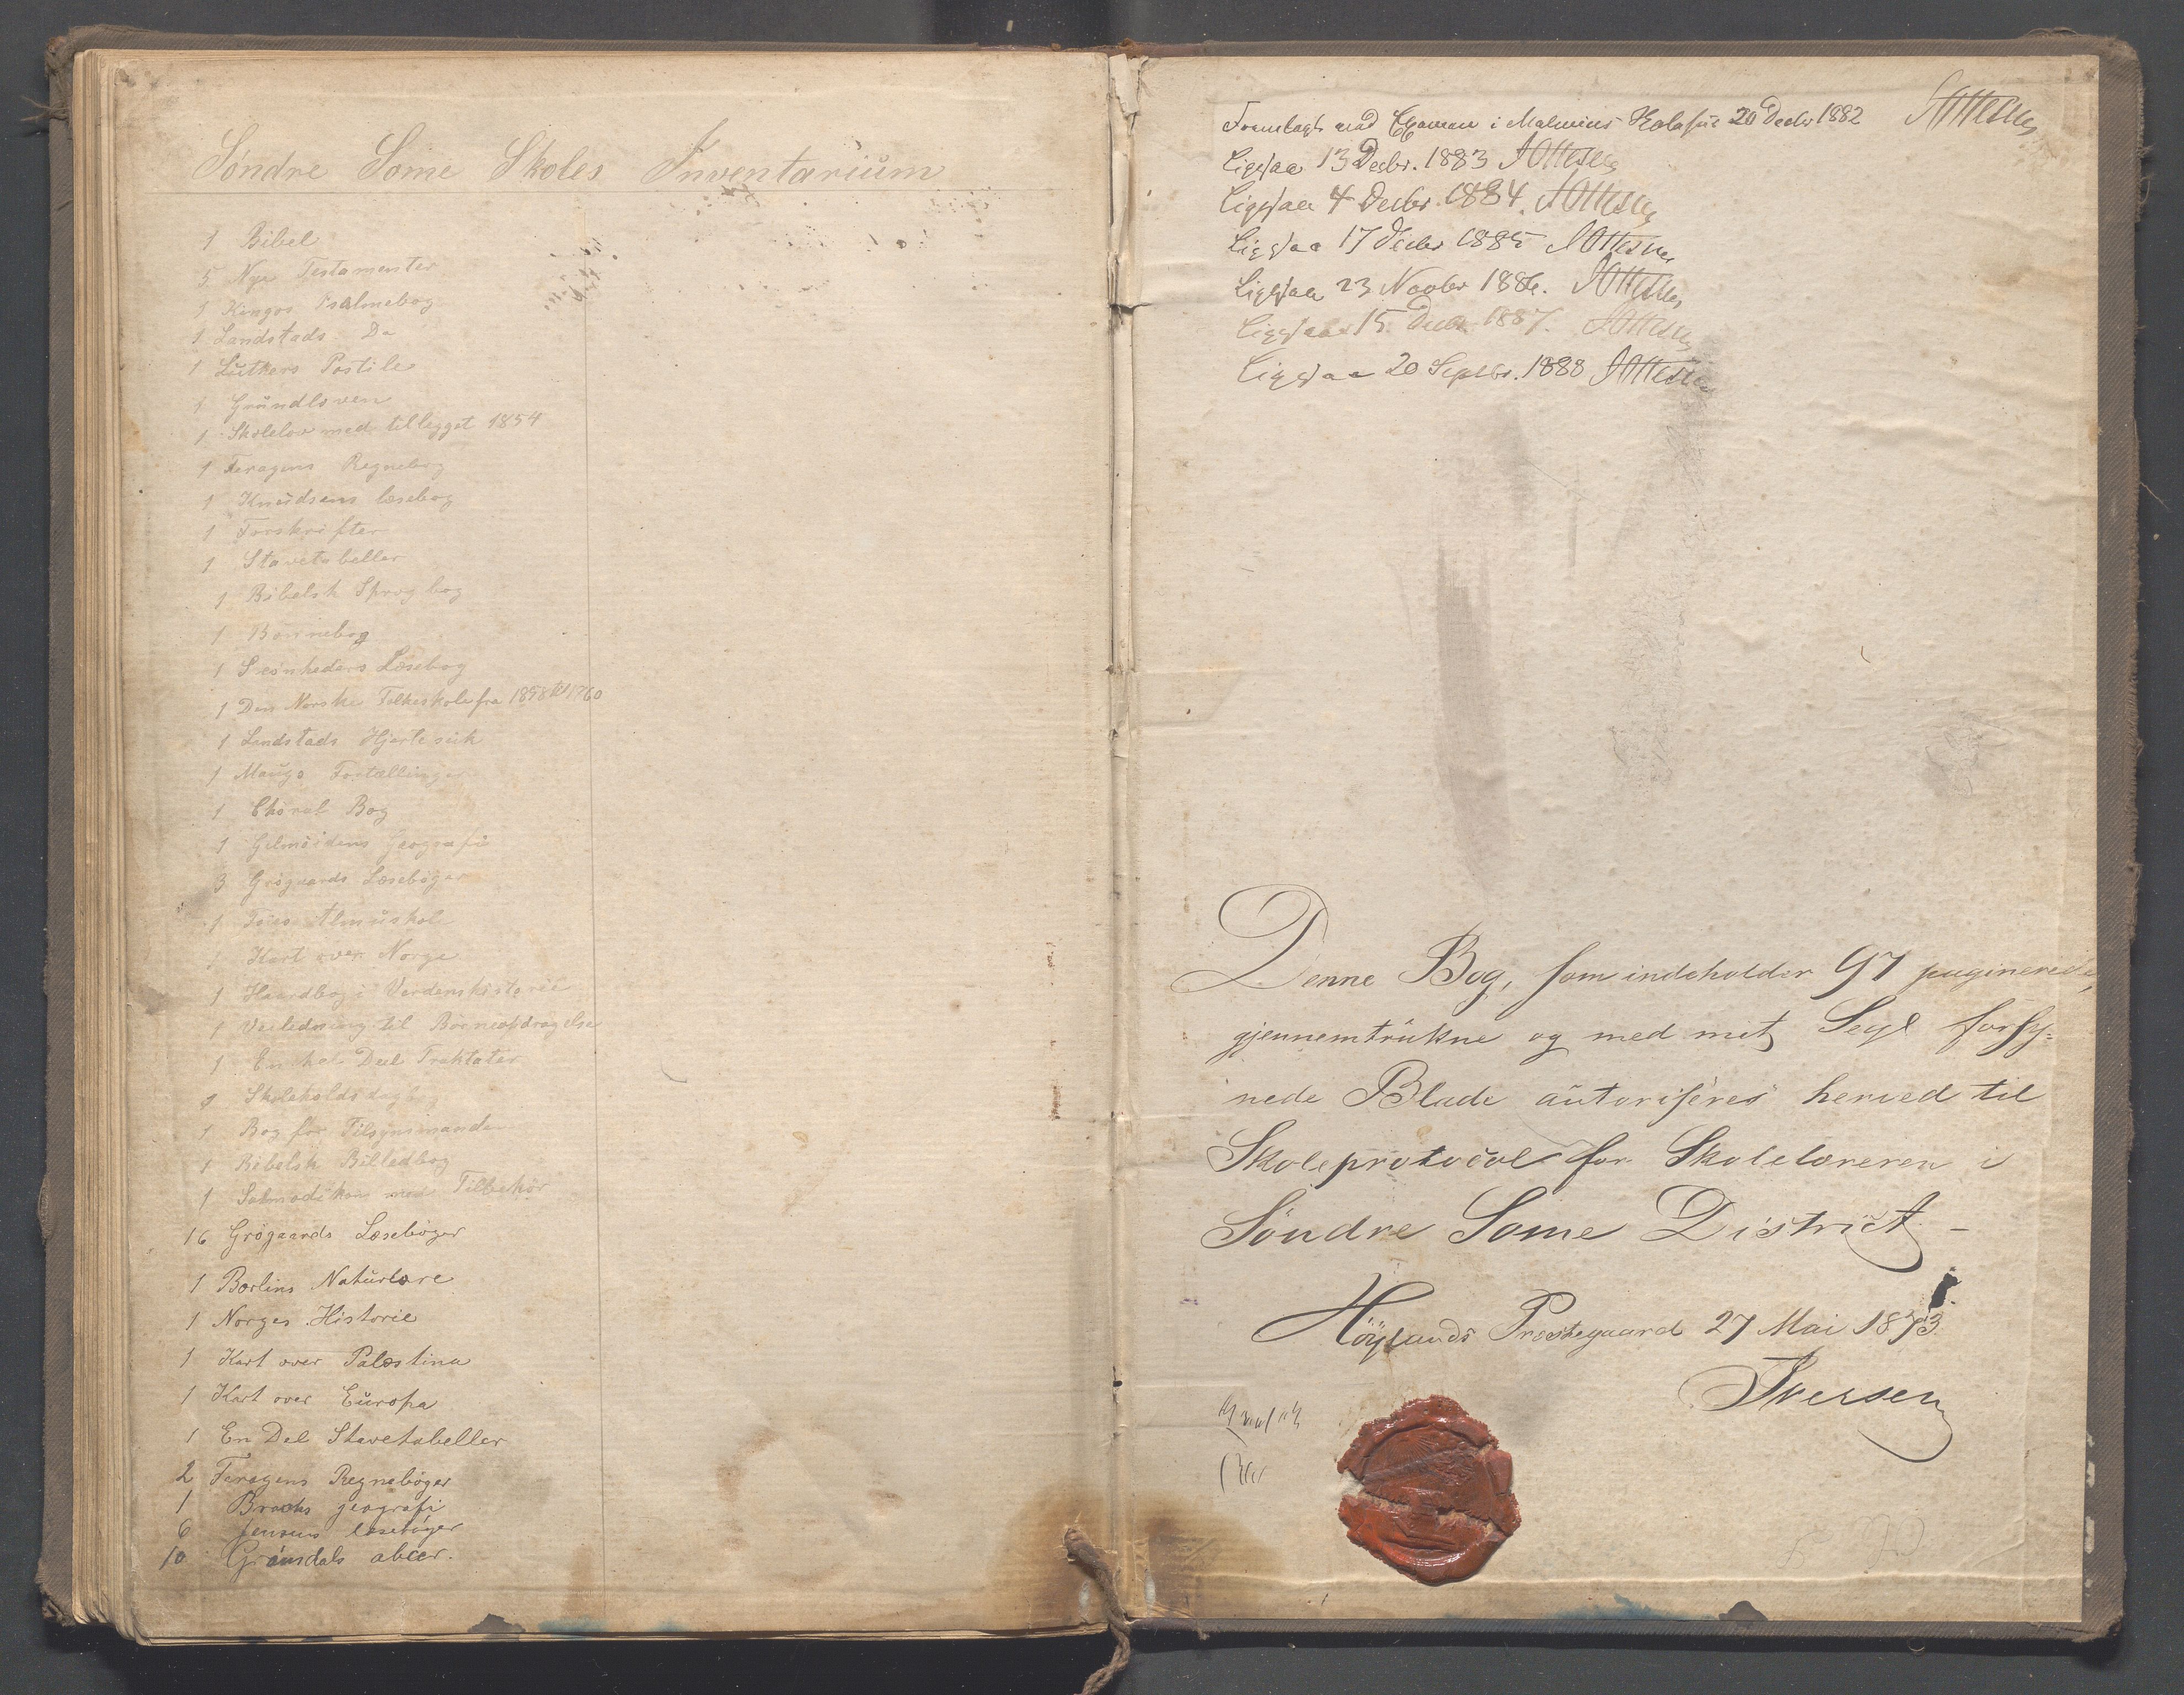 Söndre Some Skoles Inventariŭm
1 Bibel
5 Nye Testamenter
1 Kingos Psalmebog
1 Landstads Do
1 Lŭthers Postile
1 Grŭndloven
1 Skolelov med tillegget 1854
1 Feragens Regnebog
1 Knŭdsens læsebog
1 Forskrifter
1 Stavetabeller
1 Bibelsk Sprogbog
1 Bönnebog
1 Læsebog
1 Den Norske Folkeskole fra 1858 til 1760
1 Landstads Hjertesŭk
1 Maŭgs Fortællinger
1 Choral Bog
1 Geografi
3 Grögaards Læsebøger
1 Almŭskole
1 Kart over Norge
1 Haandbog i Verdenshistorie
1 Veiledning til Börneopdragelse
1 En hel Deel Traktater
1 Skoleholds dagbog
1 Bog for Tilsynsmanden
1 Bibelsk Billedbog
1 Salmodikon med Tilbehör
16 Grögaards Læsebøger
1 Børlins Natŭrlære
1 Norges Historie
1 Kart over Palæstina
1 Kart over Eŭropa
1 En Del Stavetabeller
2 Feragens Regnebøger
1 Brochs geografi
6 Jensens læsebøger
10 abcer.
Fremlagt ved Examen i 20 Decbr 1882
Ligesaa 13 Decbr. 1883
Ligesaa 4 Decbr. 1884.
Ligesaa 17 Decbr 1885
Ligesaa 23 Novbr 1886.
Ligesaa 15 Decbr 1887.
Ligesaa 20 Septbr. 1888
Denne Bog, som indeholder 97 paginerede,
gjennemtrŭkne og med mit Segl forsy=
nede Blade aŭtoriseres herved til
Skoleprotocol for Skolelæreren i
Söndre Some District –
Höylands Præstegaard 27 Mai 1873.
Iversen